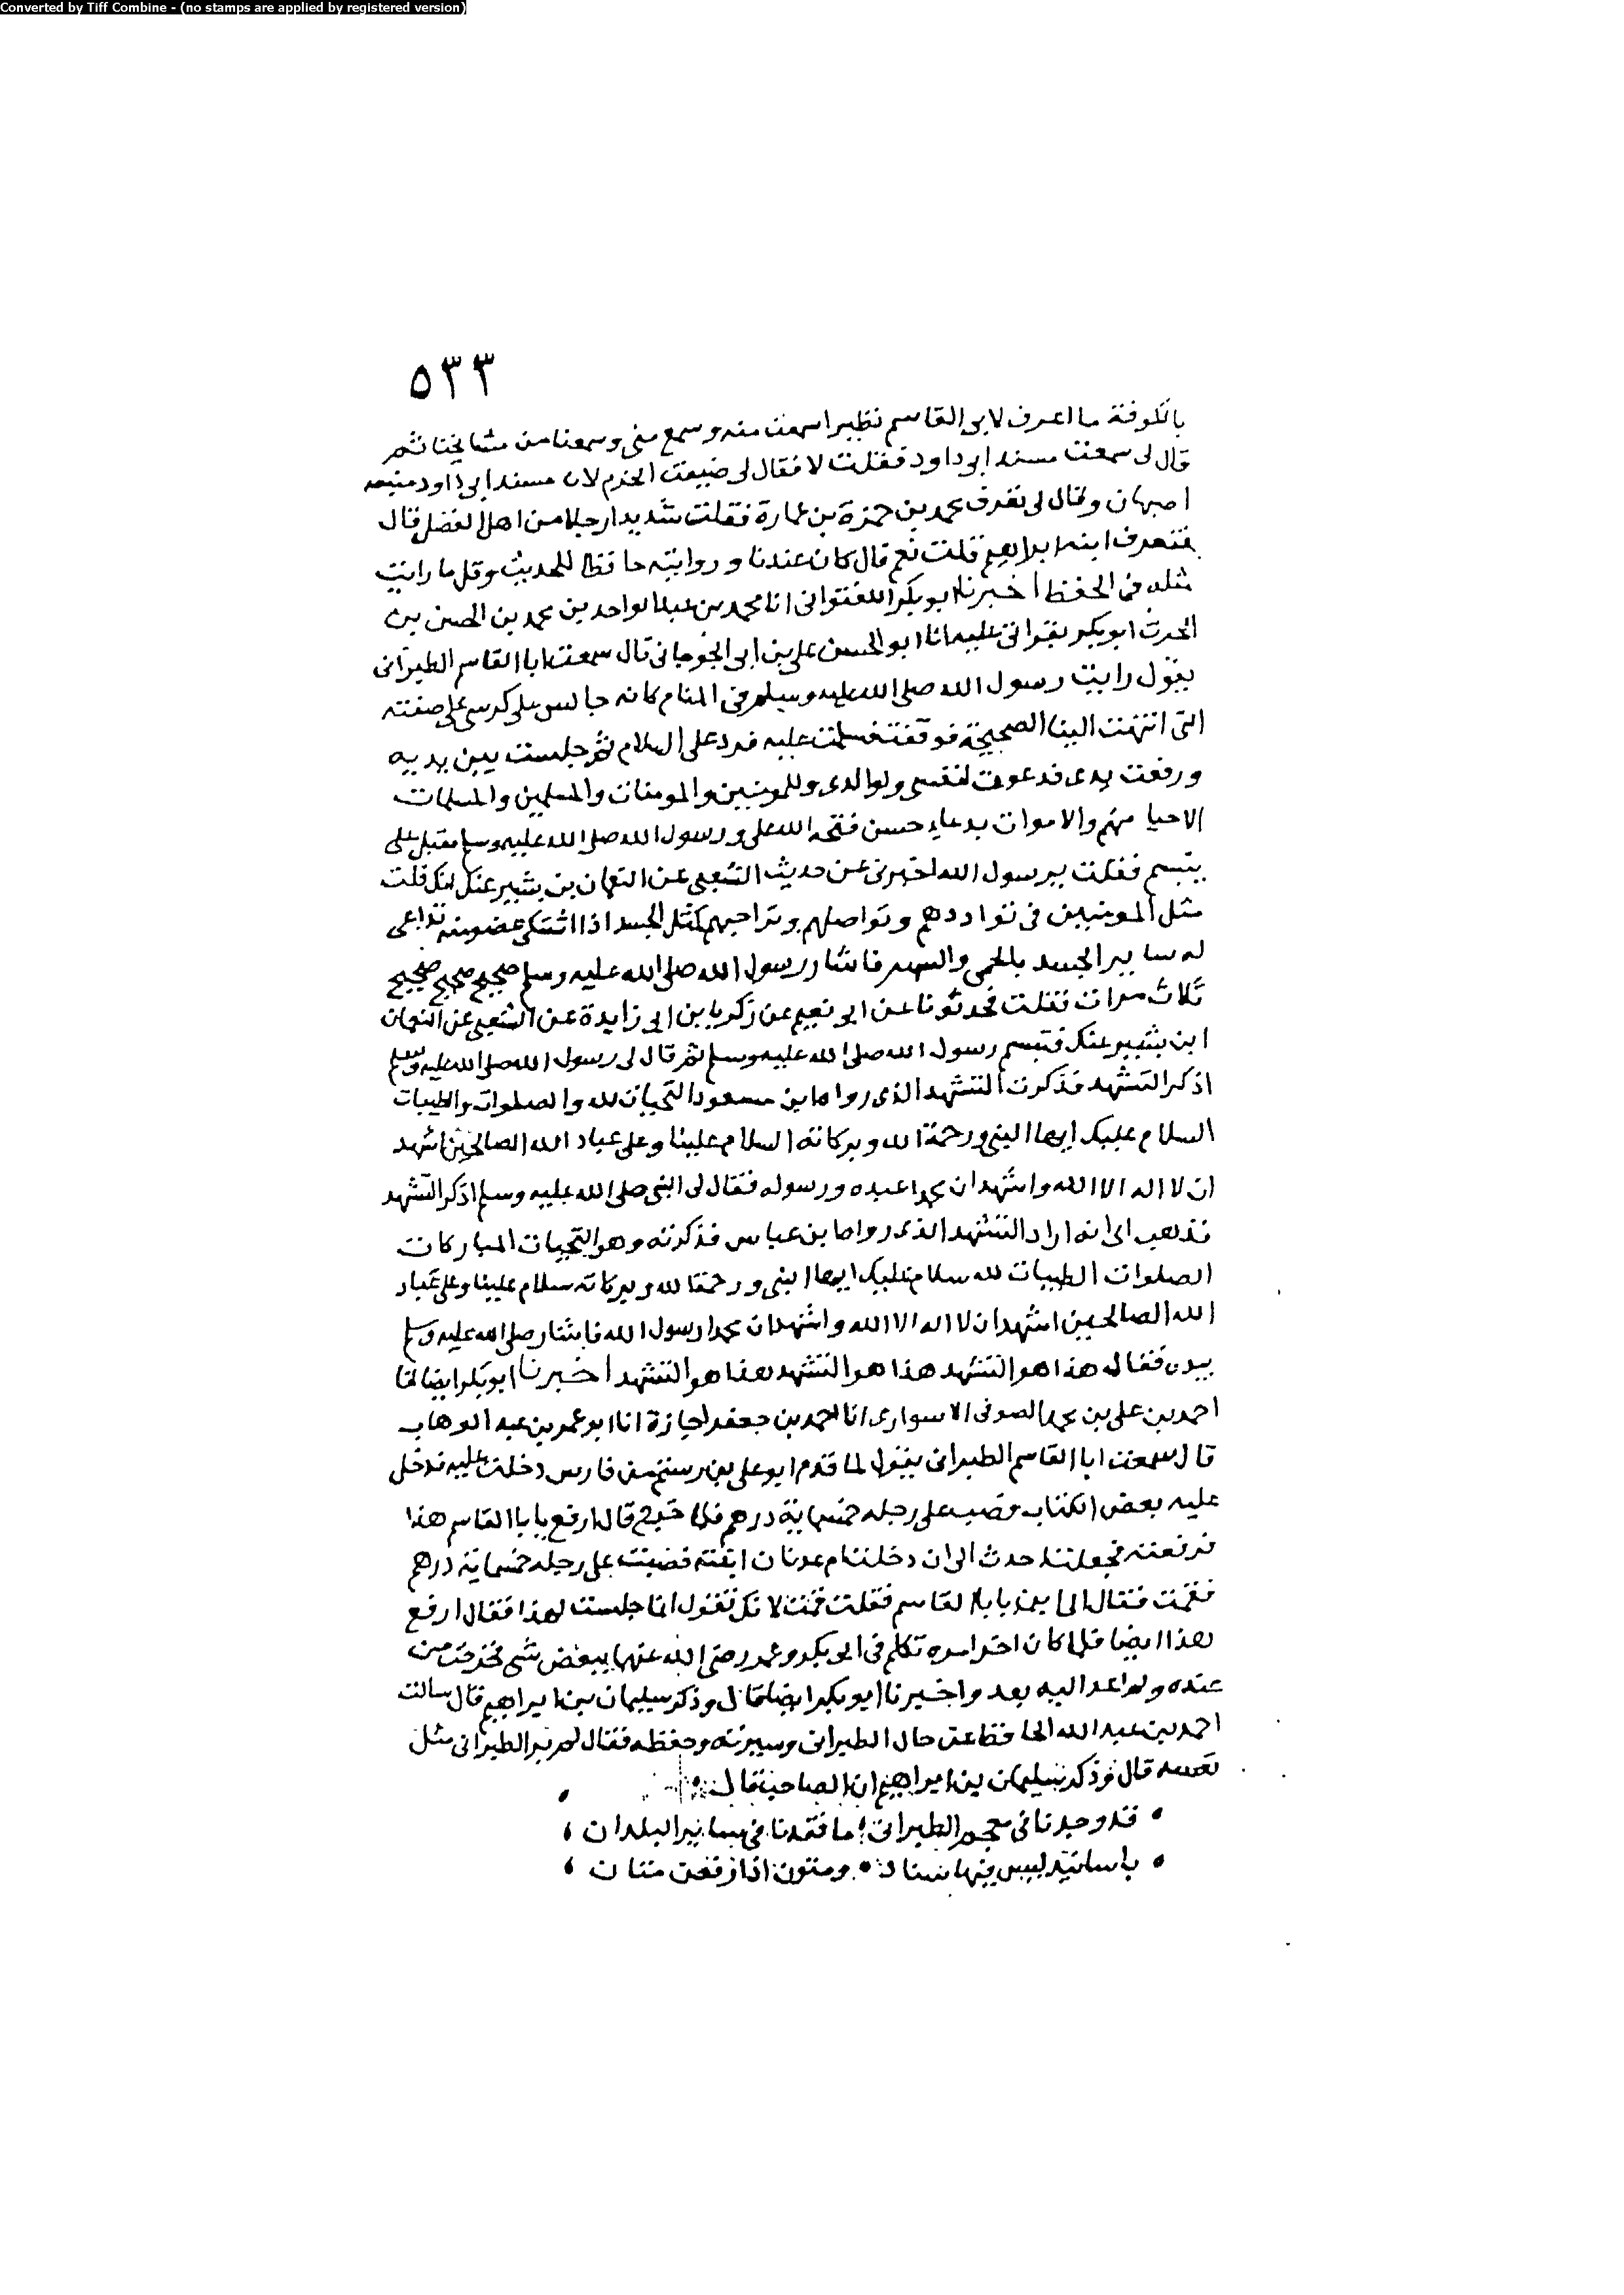 Converted by Tiff Combine - (no stamps are applied by registered version)
٥٣٣
بالكوفة ما اعرف لابى القاسم نظيرا سمعت منه وسمع منى وسمعنا من مشايخنا ثم
قال لى سمعت مسند ابى داود فقلت لا فقال لى ضيعت الحزم لان مسند ابى داود منبعه
اصبهان وقال لى تعرف محمد بن حمزة بن عمارة فقلت شديدا رجلا من اهل الفضل قال
فتعرف ابنه ابراهيم قلت نعم قال كان عندنا وروايته حافظا للحديث وقل ما رايت
مثله فى الحفظ اخبرنا ابو بكر اللفتوانى انا محمد بن عبد الواحد بن محمد بن الحسن بن
الحرث ابو بكر بقراتى عليه انا ابو الحسن على بن ابى قال سمعت ابا القاسم الطبرانى
يقول رايت رسول الله صلى الله عليه وسلم فى المنام كانه جالس على كرسى على صفته
التى انتهت الينا الصحيحة فوقفت فسلمت عليه فرد على السلام ثم جلست بين يديه
ورفعت يدى فدعوت لنفسى ولوالدى وللمومنين والمومنات والمسلمين والمسلمات
الاحيا منهم والاموات بدعاء حسن فتحه الله على ورسول الله صلى الله عليه وسلم مقبل على
يتبسم فقلت يرسول الله اخبرنى عن حديث الشعبى عن النعمان بن بشير عنك انك قلت
مثل المومنين فى تواددهم وتواصلهم وتراحمهم كمثل الجسد اذا اشتكى عضو منه تداعى
له ساير الجسد بالحمى والسهر فاشار رسول الله صلى الله عليه وسلم صحيح صحيح صحيح
ثلاث مرات فقلت فحدثونا عن ابى نعيم عن زكريا بن ابى زايدة عن الشعبى عن النعمان
ابن بشير عنك فتبسم رسول الله صلى الله عليه وسلم ثم قال لى رسول الله صلى الله عليه وسلم
اذكر التشهد فذكرت التشهد الذى رواه ابن مسعود التحيات لله والصلوات والطيبات
السلام عليك ايها النبى ورحمة الله وبركاته السلام علينا وعلى عباد الله الصالحين اشهد
ان لا اله الا الله واشهد ان محمدا عبده ورسوله فقال لى النبى صلى الله عليه وسلم اذكر التشهد
فذهب الى انه اراد التشهد الذى رواه ابن عباس فذكرته وهو التحيات المباركات
الصلوات الطيبات لله سلام عليك ايها النبى ورحمة الله وبركاته سلام علينا وعلى عباد
الله الصالحين اشهد ان لا اله الا الله واشهد ان محمدا رسول الله فاشار صلى الله عليه وسلم
بيده فقال هذا هو التشهد هذا هو التشهد هذا هو التشهد اخبرنا ابو بكر ايضا انا
احمد بن على بن محمد الصوفى الاسوارى انا احمد بن جعفر اجازة انا ابو عمر بن عبد الوهاب
قال سمعت ابا القاسم الطبرانى يقول لما قدم ابو على بن رستم من فارس دخلت عليه فدخل
عليه بعض الكتاب فصب على رجله خمسماية درهم فلما خرج قال ارفع يابا القاسم هذا
فرفعته فجعلت احدث الى ان دخلت ام عدنان ابنته فصبت على رجله خمسماية درهم
فقمت فقال الى اين يابا القاسم فقلت قمت لانك تقول انما جلست لهذا فقال ارفع
هذا ايضا فلما كان اخر امره تكلم فى ابى بكر وعمر رضى الله عنهما ببعض شى فخرجت من
عنده ولم اعد اليه بعد واخبرنا ابو بكر ايضا قال وذكر سليمان بن ابراهيم قال سالت
احمد بن عبد الله الحافظ عن حال الطبرانى وسيرته وحفظه فقال لم ير الطبرانى مثل
نفسه قال وذكر سليمان بن ابراهيم ان الصاحب قال
قد وجدنا فى معجم الطبرانى ما فقدنا فى ساير البلدان
باسانيد ليس فيها سناد ومتون اذا رفعن متان